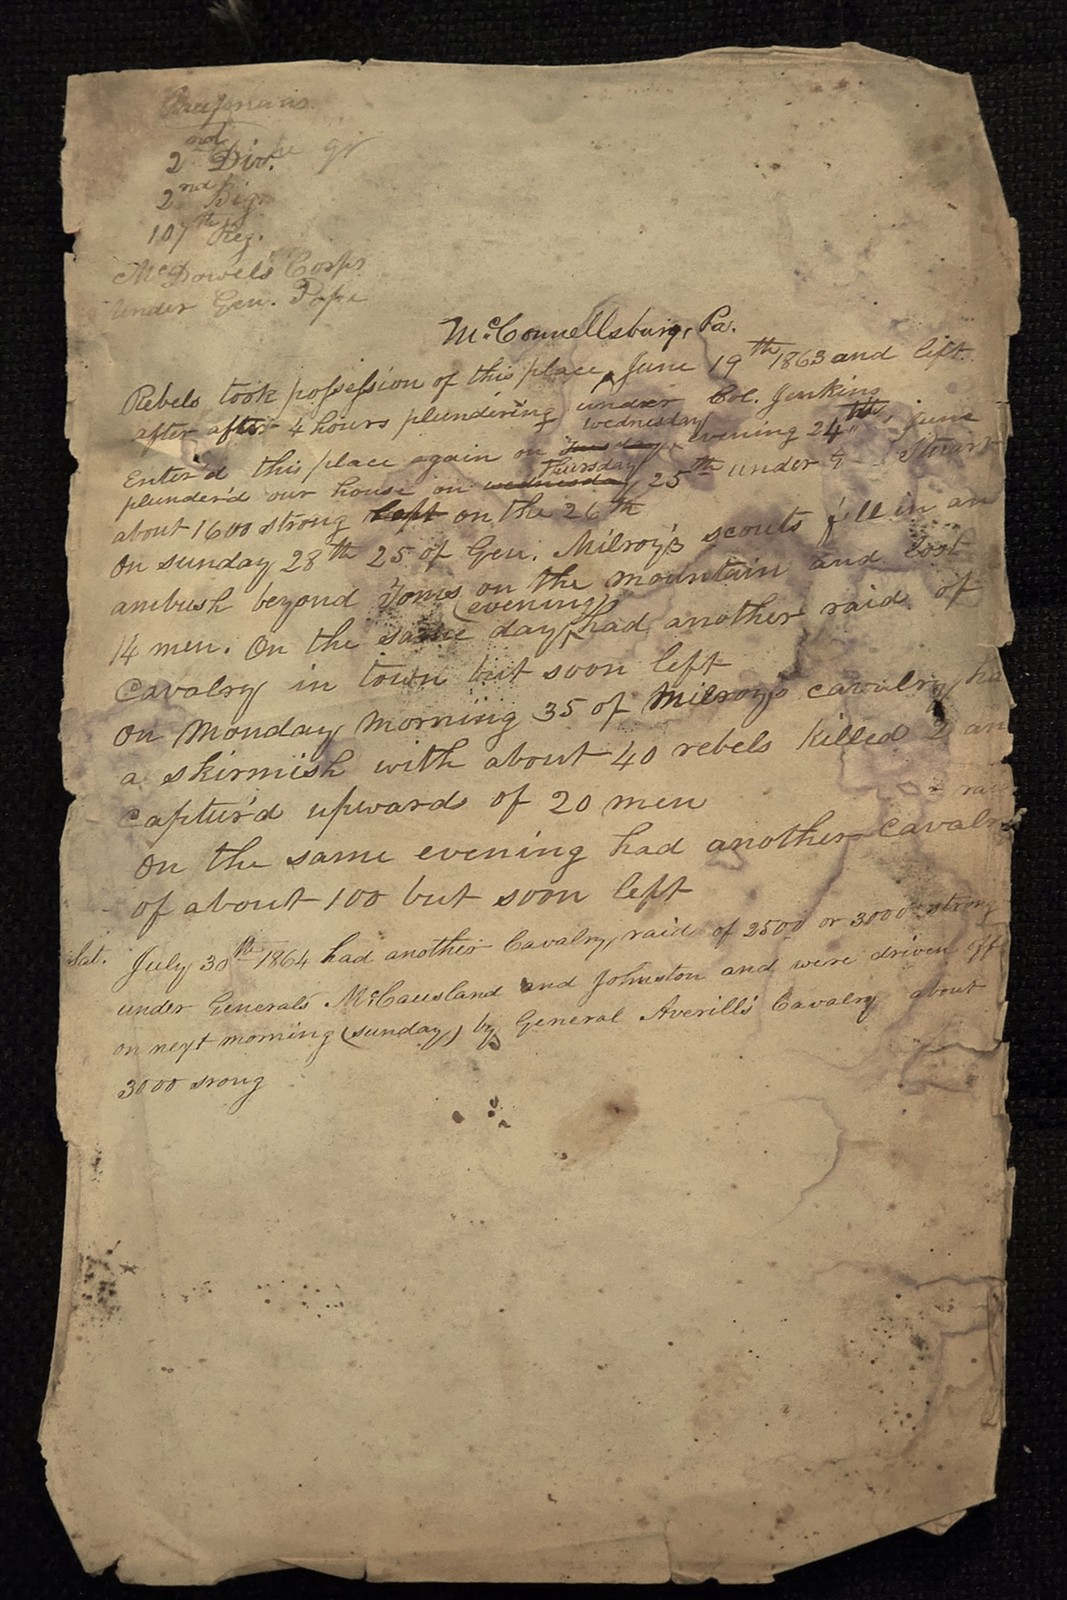 2nd Div.
2nd Brig.
107th Reg.
McDowels Corps
Under Gen. Pope
McConnellsburg, Pa.
Rebels took possession of this place, June 19th 1863 and left
after after 4 hours plundering under Col. Jenkins
Enter'd this place again on tuesday wednesday evening 24th, June
plunder'd our house on wednesday Thursday 25th under Stuart
about 1600 strong left on the 26th
On sunday 28th 25 of Gen. Milroy's scouts fell in an
ambush beyond Toms on the mountain and lost
14 men. On the same day (evening) had another raid of
Cavalry in town but soon left
On Monday morning 35 of Milroy's cavalry ha
a skirmish with about 40 rebels killed 2 an
captur'd upwards of 20 men
On the same evening had another cavalry rai
of about 100 but soon left
Sat. July 30th 1864 had another Cavalry raid of 2500 or 3000 strong
under Generals McCausland and Johnston and were driven off
on next morning (sunday) by General Averill's Cavalry about
3000 srong